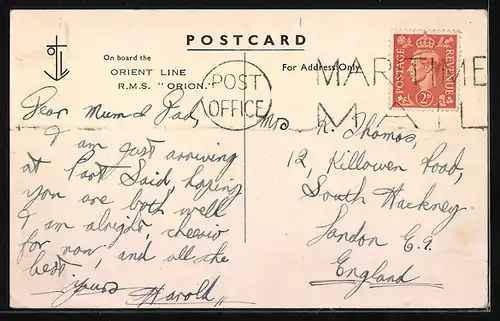 POSTCARD
On board the
ORIENT LINE
R.M.S. "ORION."
For Address Only
POST
OFFICE
MARITIME
MAIL
POSTAGE
REVENUE
2D
Dear Mum & Dad,
I am just arriving
at Port Said, hoping
you are both well
I am alright, cheerio
for now, and all the
best.
Yours Harold
Mrs N. Thomas,
12, Killowen Road,
South Hackney
London E.9.
England